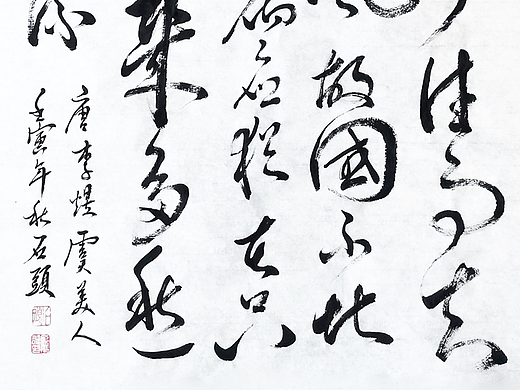 往事知
故國不堪
砌應猶在只
幾多愁
流
唐李煜虞美人
壬寅年秋石頭